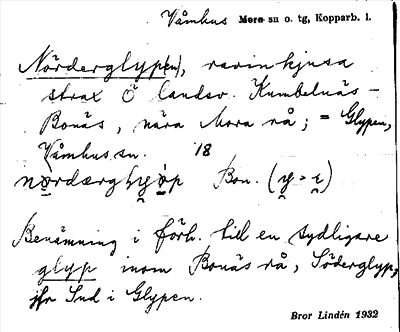 Våmhus Mora sn o. tg, Kopparb. l.
Nörderglyp(en), ravin kjusa
strax Ö landsv. Kumbelnäs -
Bonäs, nära Mora rå; = Glypen,
Våmhus sn. 18
Bon.
Benämning i förh. till en sydligare
glyp inom Bonäs rå, Söderglyp,
jfr Snd i Glypen.
Bror Lindén 1932